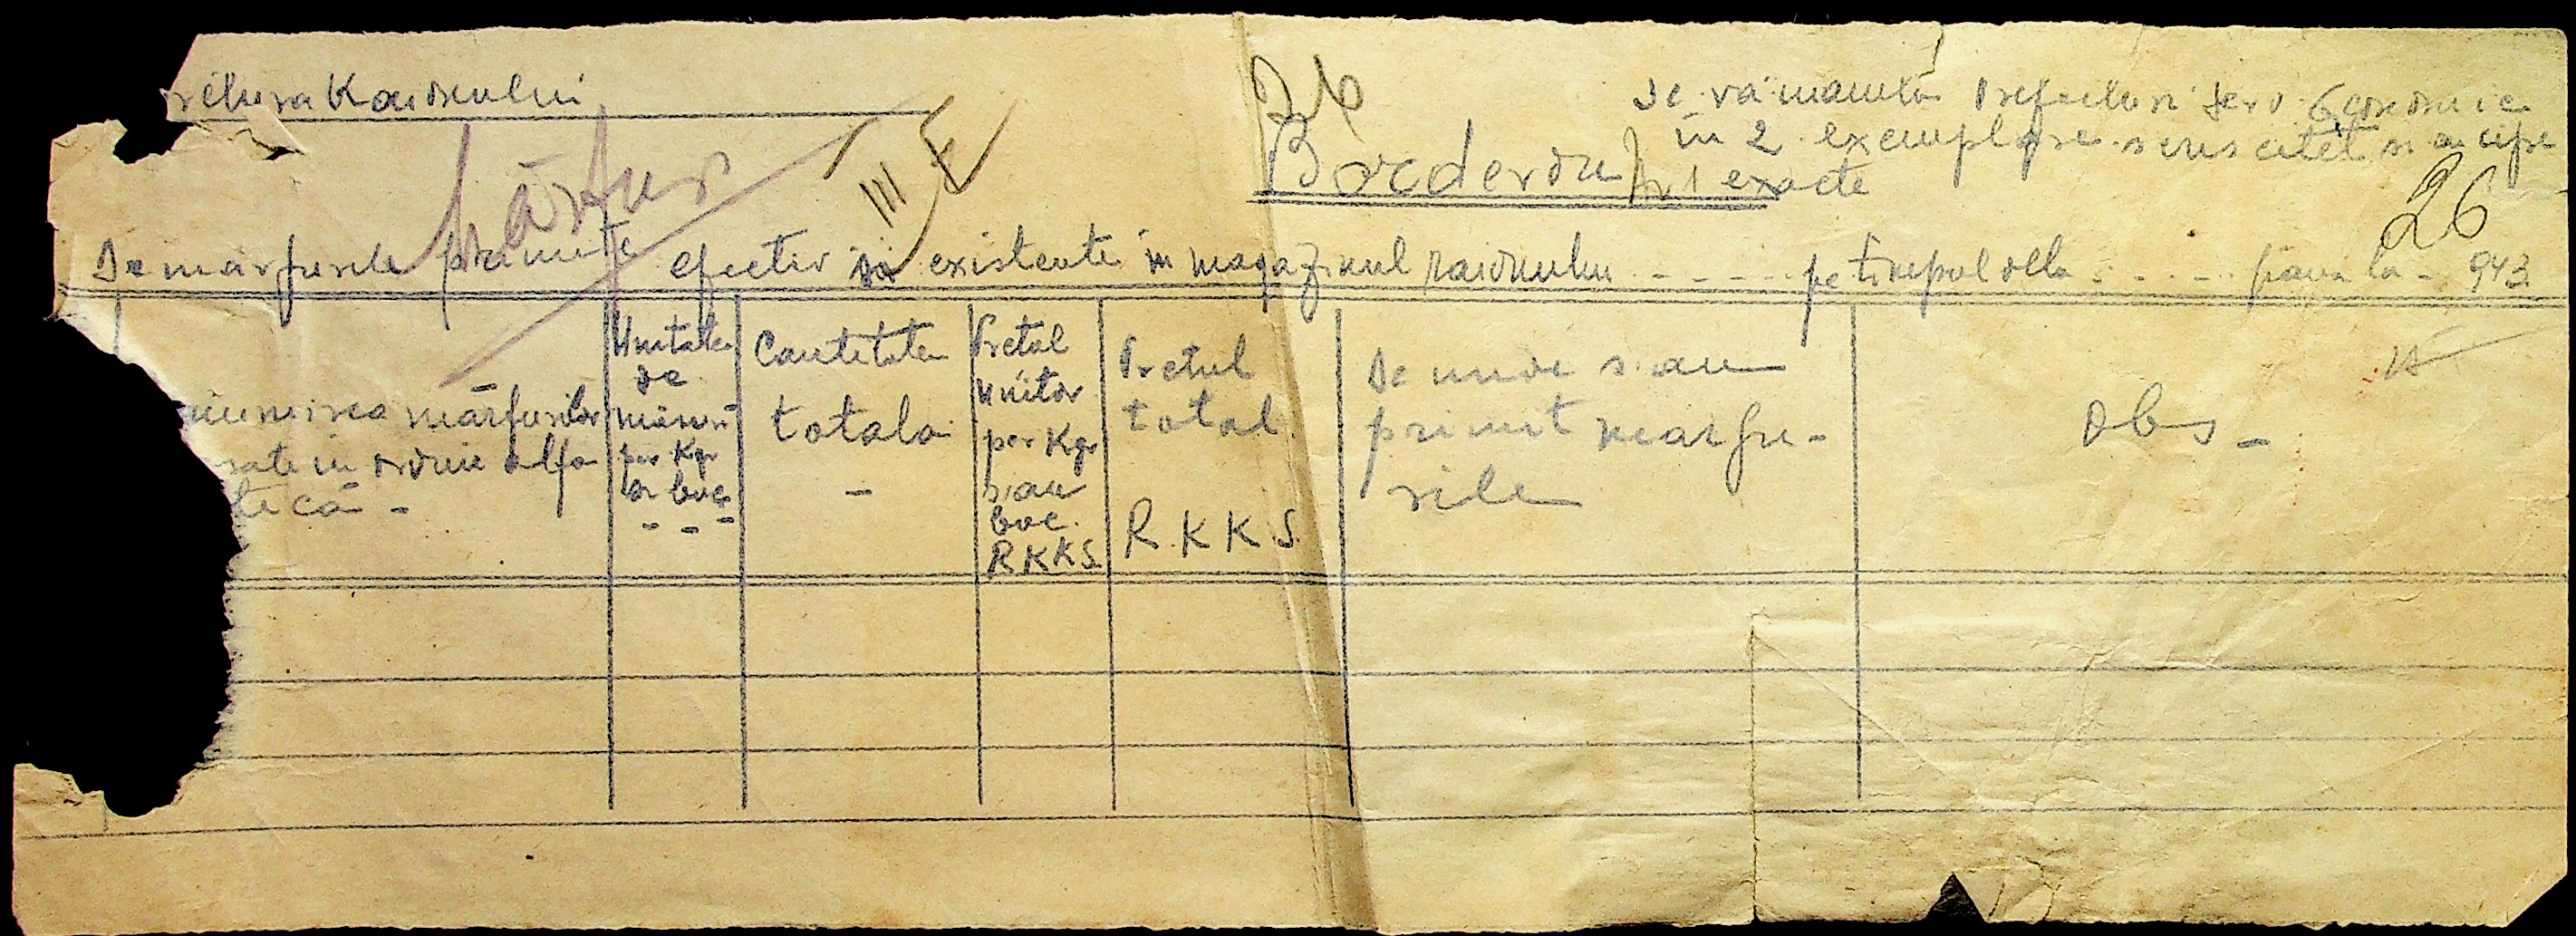 Raionului
Se va inainta Prefecturii Serv. Economic
in 2 exemplare scris citet si cifre
exacte
Borderou Nr 1
26
III E
De marfurile primite efectiv si existente in magazinul raionului - - - - - pe timpul dela - - - - pana la - 943
numirea mărfurilor
sate in ordine alfa
tecă -
Unitatea
de
măsură
per Kgr
or buc
- - -
Cantitatea
totala
-
Pretul
unitar
per Kgr
sau
buc.
RKKS
Pretul
total.
R.K.K.S.
De unde s.au
primit marfu-
rile
Obs -